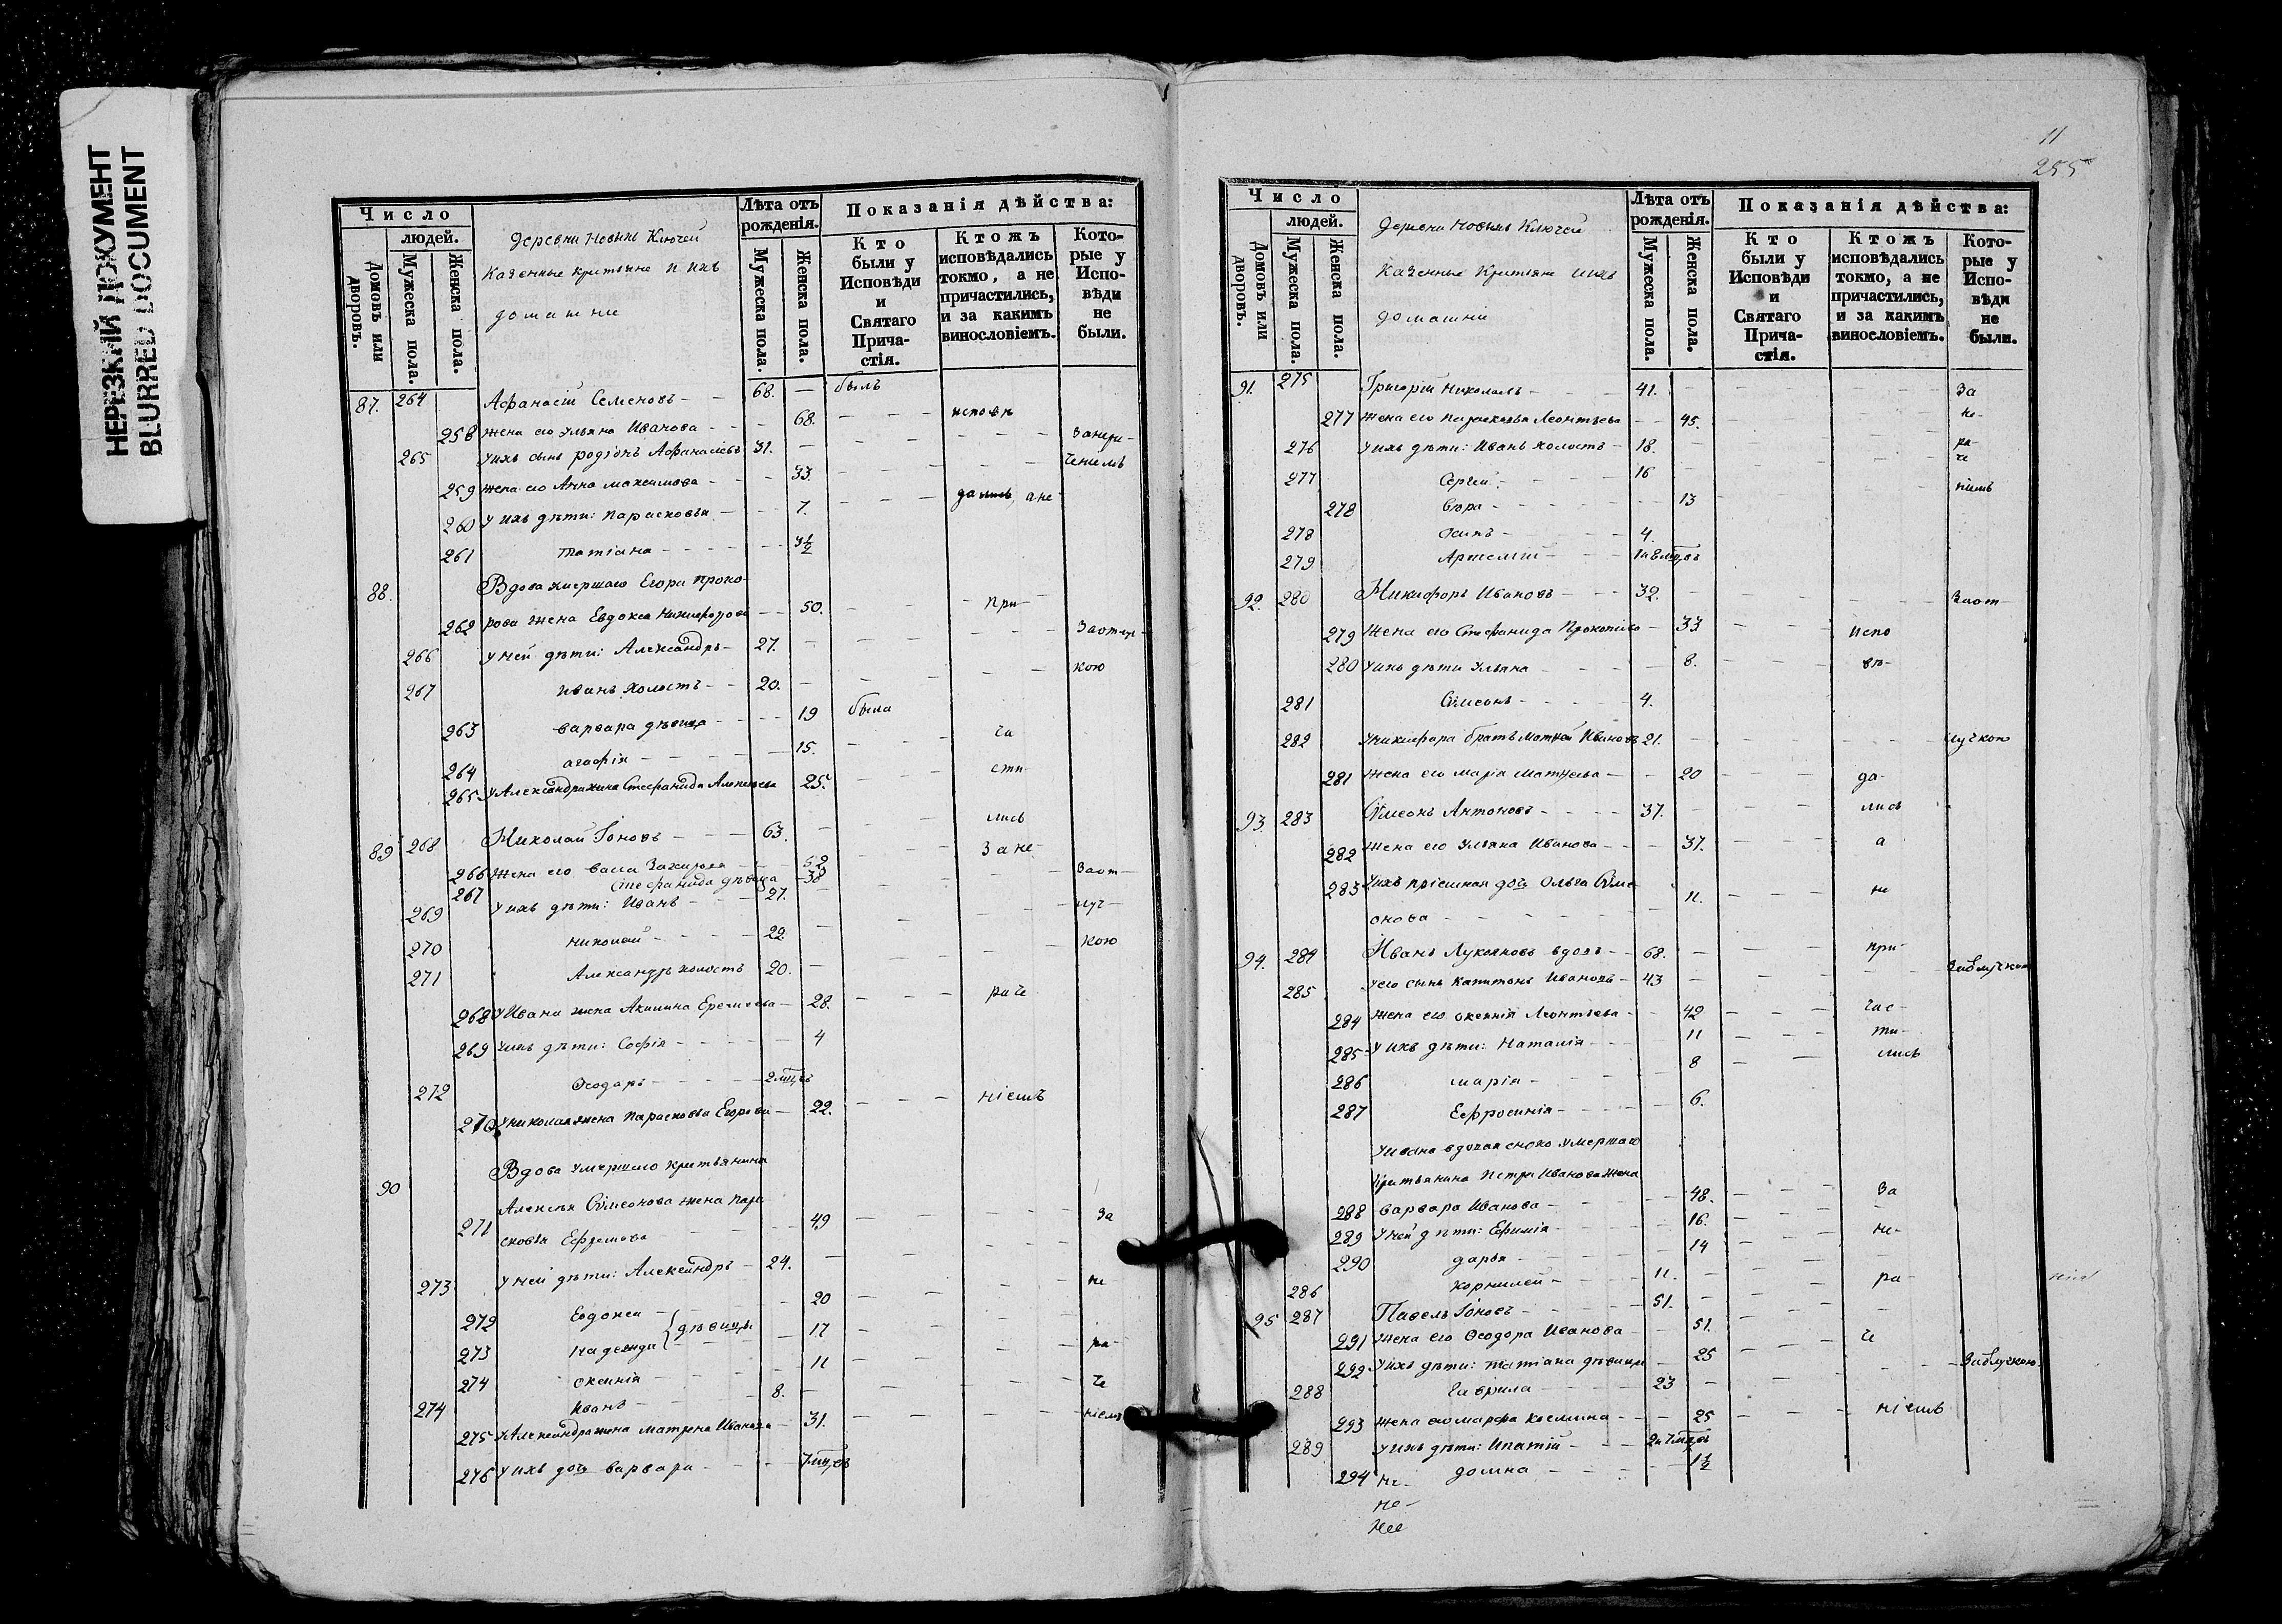 НЕРЕЗКИЙ ДОКУМЕНТ
BLURRED DOCUMENT
Число
людей.
Домовъ или дворовъ.
Мужеска пола.
Женска пола.
деревни Новыхъ Ключей
Казенные Кретьяне и ихъ
домашние
Лѣта отъ рожденія.
Мужеска пола.
Женска пола.
Показанія дѣйства:
Кто были у Исповѣди и Святаго Прича-стія.
Ктожъ исповѣдались токмо, а не причастились, и за какимъ винословіемъ.
Кото-рые у Испо-вѣди не были.
87. 264 Афанасій Семеновъ 68. — былъ
258 жена его Ульяна Иванова 68. исповѣ
265 У ихъ сынъ Родіонъ Афанасіевъ 31.
259 жена его Анна Максимова 33. ченіемъ
260 У ихъ дѣти: Парасковья 7. дались, а не
261 Татіана 3½
88. Вдова умершаго Егора Проко-
262 рова жена Евдокея Никифорова 50. при
266 У ней дѣти: Александръ 27.
267 Иванъ холостъ 20. кою
263 Варвара дѣвица 19 была
264 Агафія 15. ча
265 У Александра жена Стефанида 25. сти
89 268 Николай Іоновъ 63. лись
266 жена его Васса 52 За не
267 Стефанида дѣвица 30 Заот
269 У ихъ дѣти: Иванъ 27. луч
270 Николай 22 кою
271 Александръ холостъ 20.
268 У Ивана жена Акилина 28. раче
269 У ихъ дѣти: Софія 4
272 Ѳеодоръ 2 мцѣв
270 У Николая жена Парасковья Егорова 22. ніемъ
90 Вдова умершаго кретьянина
Алексѣя Сѵмеонова жена Пара
271 сковья Ефремова 49 За
273 У ней дѣти: Александръ 24. не
272 Евдокея 20
273 Надежда } дѣвицы 17 ра
274 Оксинія 11
274 Иванъ 8. че
275 У Александра жена Матрена Иванова 31. ніемъ
276 У ихъ дочь Варвара 7 мцѣв
11
255
Число
людей.
Домовъ или дворовъ.
Мужеска пола.
Женска пола.
Деревни Новыхъ Ключей
Казенные Кретьяне и ихъ
домашнии
Лѣта отъ рожденія.
Мужеска пола.
Женска пола.
Показанія дѣйства:
Кто были у Исповѣди и Святаго Прича-стія.
Ктожъ исповѣдались токмо, а не причастились, и за какимъ винословіемъ.
Кото-рые у Испо-вѣди не были.
91. 275 Григорій Николаевъ 41. За
277 жена его Парасковья Леонтьева 45. не-
276 У ихъ дѣти: Иванъ холостъ 18. ра
277 Сергей 16 че
278 13 ніемъ
278 Осипъ 4.
279 Артемій 1 и 8 мцѣвъ
92. 280 Никифоръ Ивановъ 32. Заот
279 Жена его Стефанида Прокопьева 33 испо
280 У ихъ дѣти Ульяна 8. вѣ-
281 Сѵмеонъ 4.
282 У Никифора братъ Матѳей Ивановъ 21. лучкою
281 жена его Марія Матѳеева 20 да-
93. 283 Сѵмеонъ Антоновъ 37. лись
282 жена его Ульяна Иванова 37. а
283 У ихъ пріемная дочь Ольга Сѵме 11. не
онова
94. 284 Иванъ Лукояновъ вдовъ 68. при-
285 У его сынъ Капитонъ Ивановъ 43 Заотлучкою
284 жена его Оксинія Леонтьева 42 час-
285 У ихъ дѣти: Наталія 11 ти-
286 Марія 8 лись
287 Ефросинія 6.
У Ивана вдовая сноха умершаго
кретьянина Петра Иванова жена
288 Варвара Иванова 48. За
289 У ней дѣти: Ефимія 16. не-
290 Дарья 14
286 Корнилей 11. ра-
95 287 Павелъ Іоновъ 51.
291 жена его Ѳеодора Иванова 51. че
292 У ихъ дѣти: Татіана дѣвица 25
288 Гаврила 23 Заотлучкою
293 жена его Марфа Космина 25 ніемъ
289 У ихъ дѣти: Ипатій 2 и 7 мцѣвъ
294 Домна 1½
не-
не-